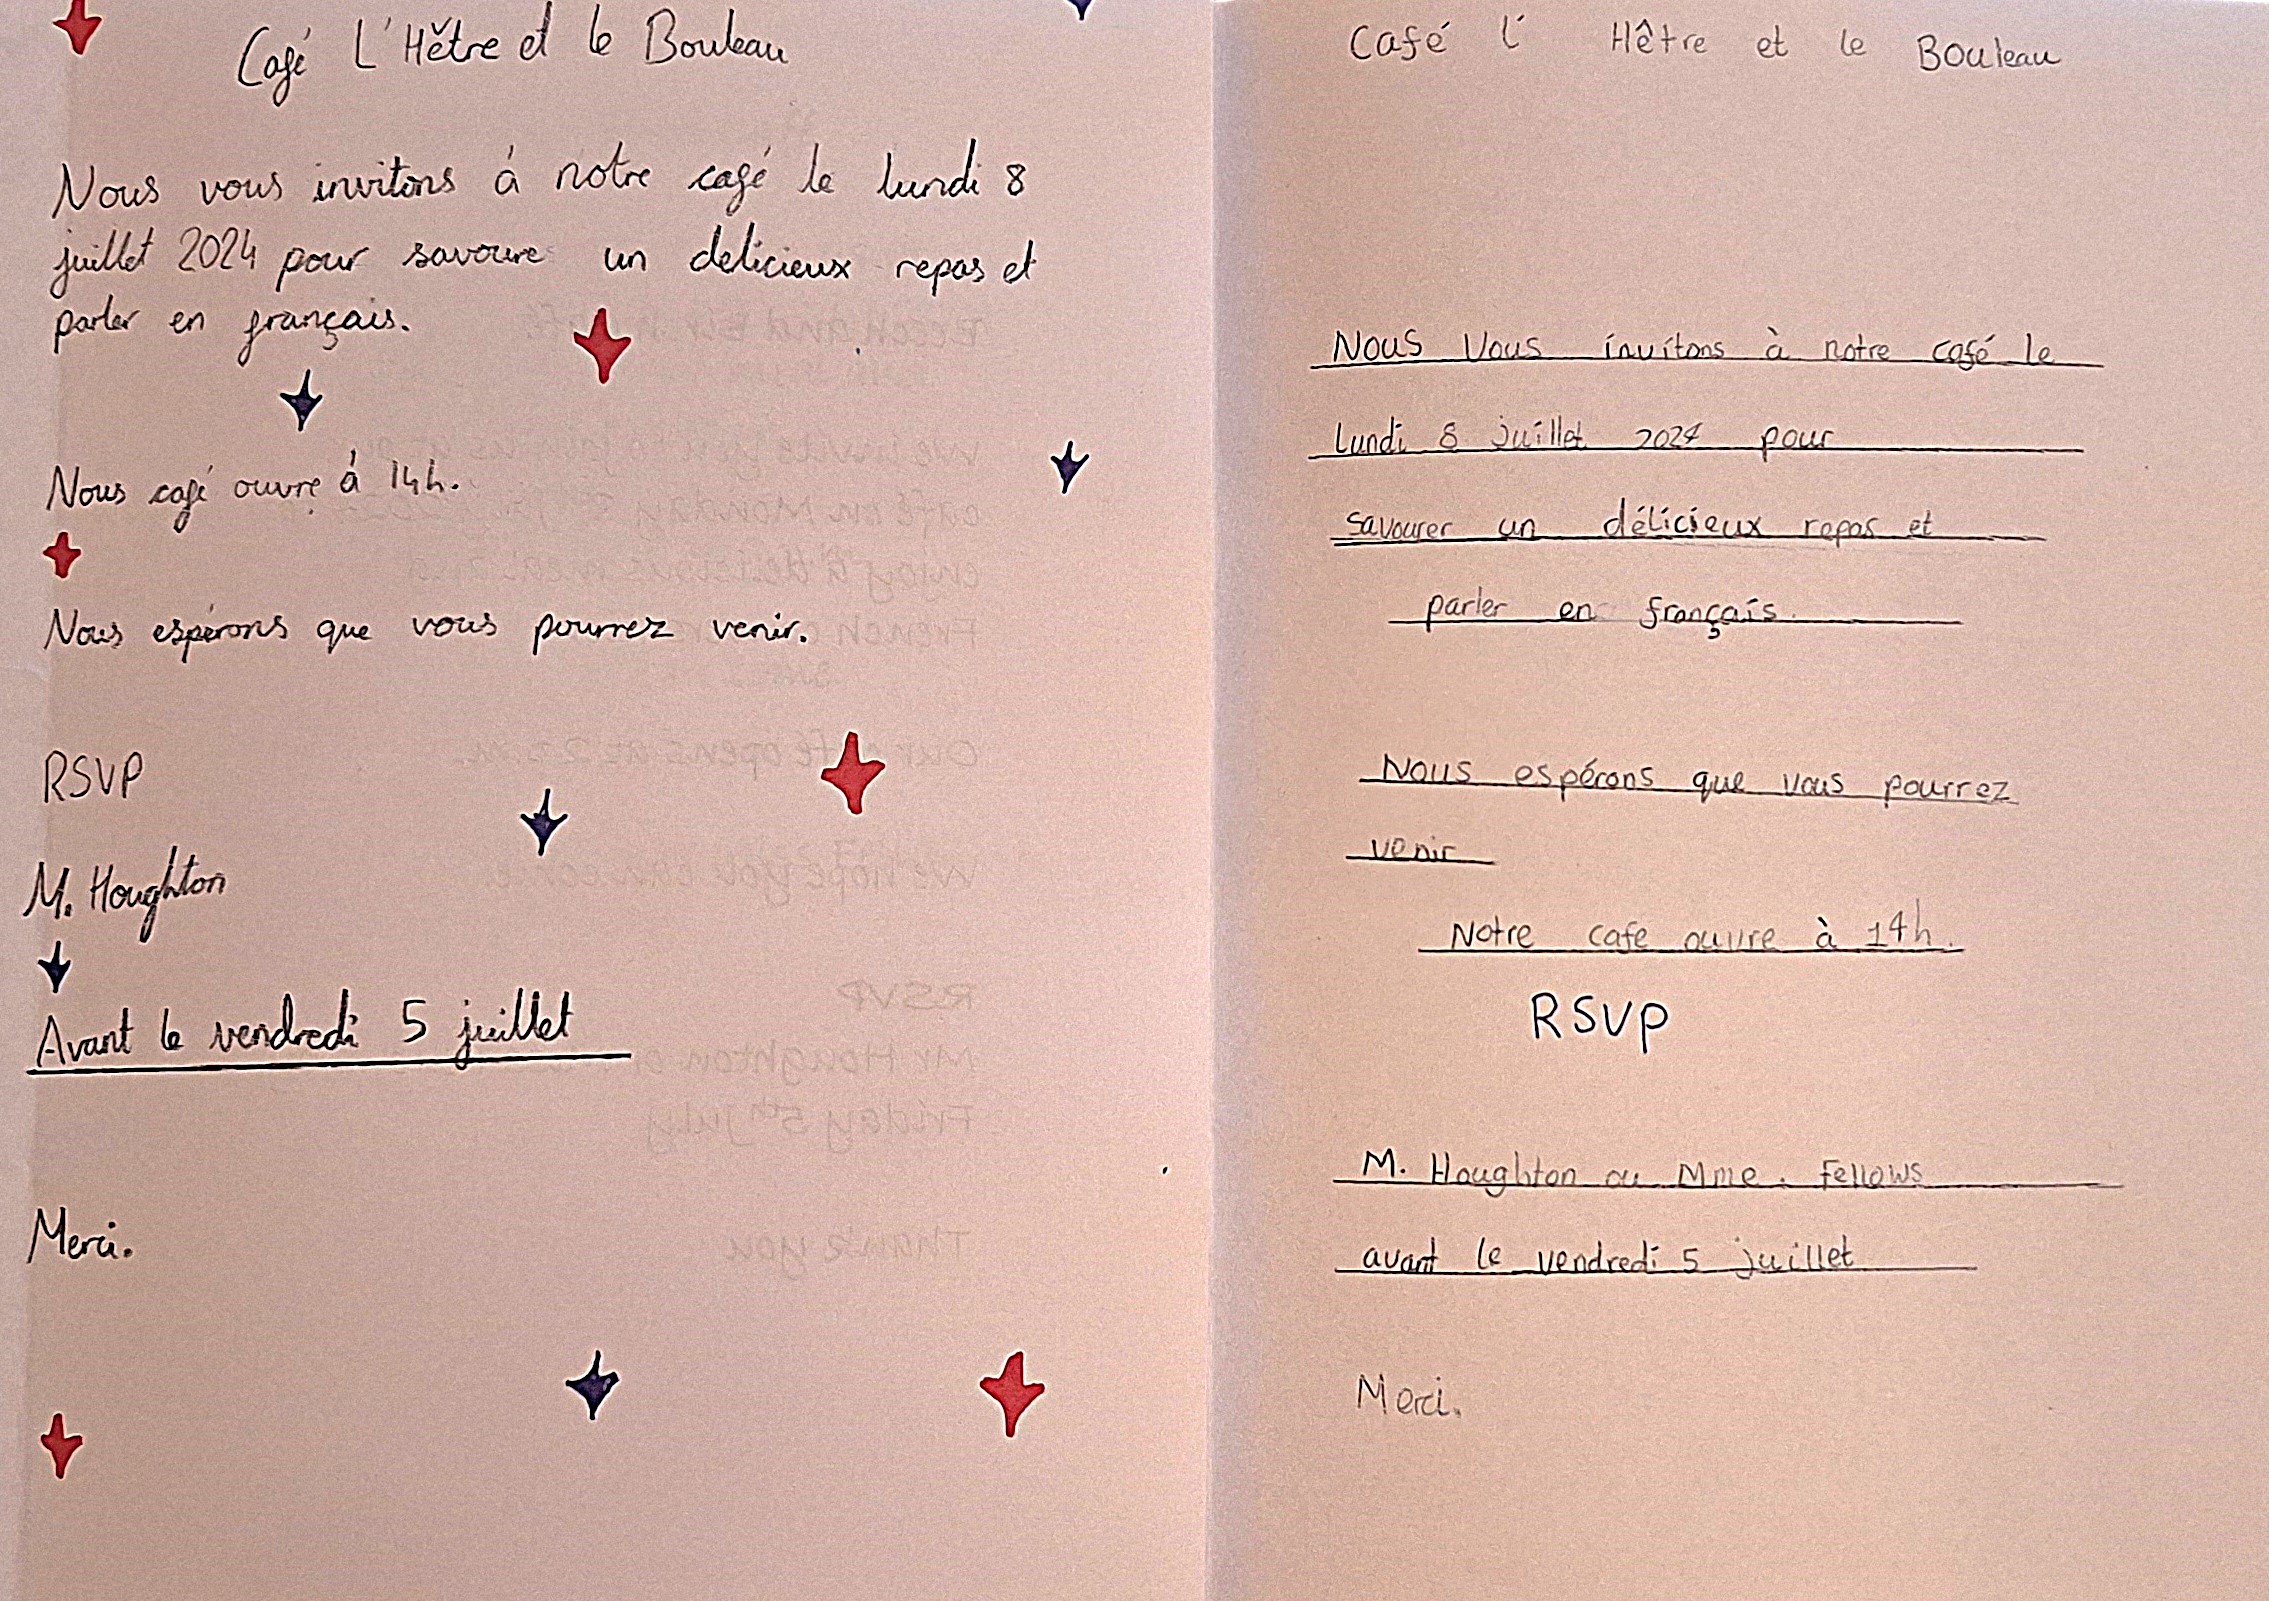 Café L'Hĕtre et le Bouleau
Nous vous invitons á notre café le lundi 8
juillet 2024 pour savoure un delicieux repas et
parler en français.
Nous café ouvre á 14h.
Nous espérons que vous pourrez venir.
RSVP
M. Houghton
Avant le vendredi 5 juillet
Merci.
Café l' Hêtre et le Bouleau
Nous Vous invitons à notre café le
lundi 8 juillet 2024 pour
savourer un délicieux repas et
parler en français.
Nous espérons que vous pourrez
venir
Notre cafe ouvre à 14h.
RSVP
M. Houghton ou Mme. Fellows
avant le vendredi 5 juillet
Merci.